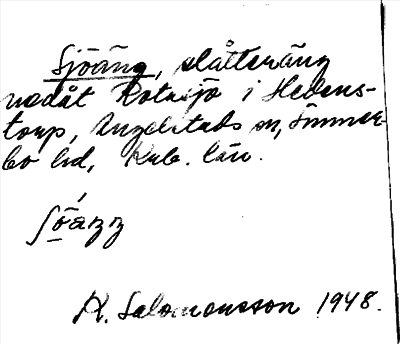 Sjöäng, slåtteräng
nedåt Rotasjö i Hedens-
torp, Angelstads sn, Sunner-
bo hd, Krb. län.
R. Salomonsson 1948.